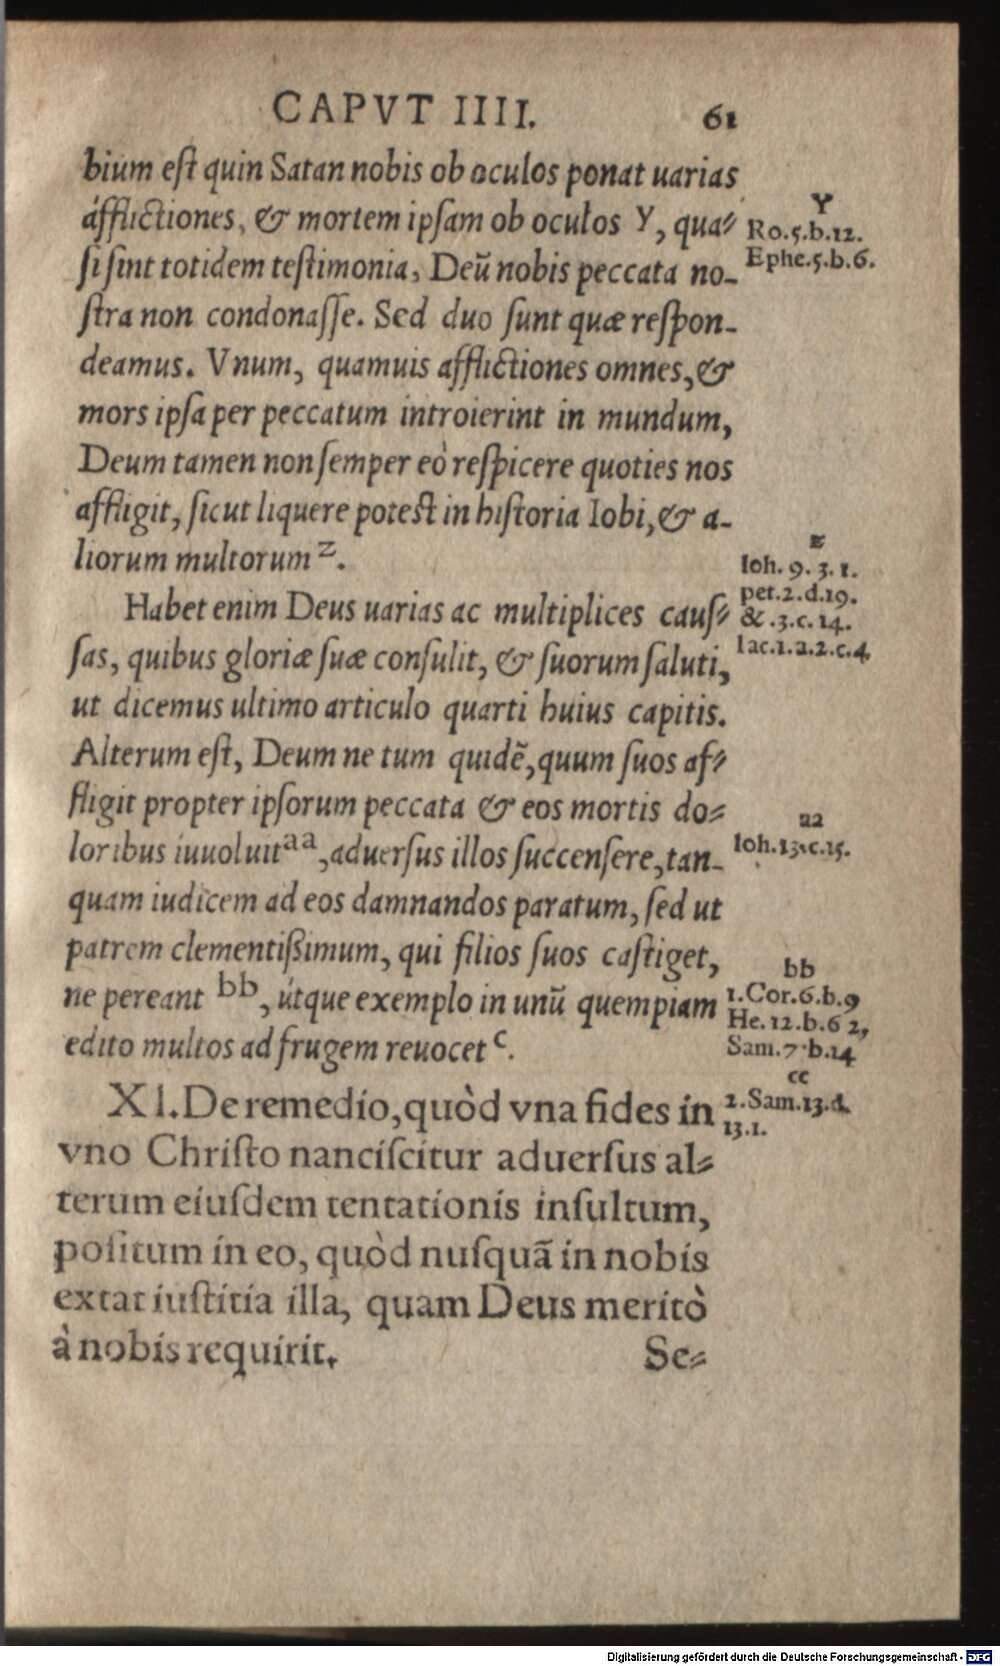 CAPVT IIII. 61
bium eſt quin Satan nobis ob oculos ponat uarias
áfflictiones, & mortem ipſam ob oculos Y, qua⸗
ſi ſint totidem teſtimonia, Deū nobis peccata no-
ſtra non condonaſſe. Sed duo ſunt quæ reſpon-
deamus. Vnum, quamuis afflictiones omnes, &
mors ipſa per peccatum introierint in mundum,
Deum tamen non ſemper eò reſpicere quoties nos
affligit, ſicut liquere poteſt in hiſtoria Iobi, & a-
liorum multorum z.
Habet enim Deus uarias ac multiplices cauſ⸗
ſas, quibus gloriæ ſuæ conſulit, & ſuorum ſaluti,
ut dicemus ultimo articulo quarti huius capitis.
Alterum eſt, Deum ne tum quidē, quum ſuos af⸗
fligit propter ipſorum peccata & eos mortis do⸗
loribus iuuoluit aa, aduerſus illos ſuccenſere, tan-
quam iudicem ad eos damnandos paratum, ſed ut
patrem clementißimum, qui filios ſuos caſtiget,
ne pereant bb, útque exemplo in unū quempiam
edito multos ad frugem reuocet c.
XI. De remedio, quòd vna fides in
vno Chriſto nanciſcitur aduerſus al⸗
terum eiuſdem tentationis inſultum,
poſitum in eo, quòd nuſquā in nobis
extat iuſtitia illa, quam Deus meritò
à nobis requirit.
Se⸗
Y
Ro.5.b.12.
Ephe.5.b.6.
z
Ioh. 9. 3. 1.
pet.2.d.19.
&.3.c.14.
Iac.1.a.2.c.4.
aa
Ioh.13.c.15.
bb
1.Cor.6.b.9
He.12.b.6 2,
Sam.7.b.14
cc
2.Sam.13.d.
13.1.
Digitalisierung gefördert durch die Deutsche Forschungsgemeinschaft - DFG